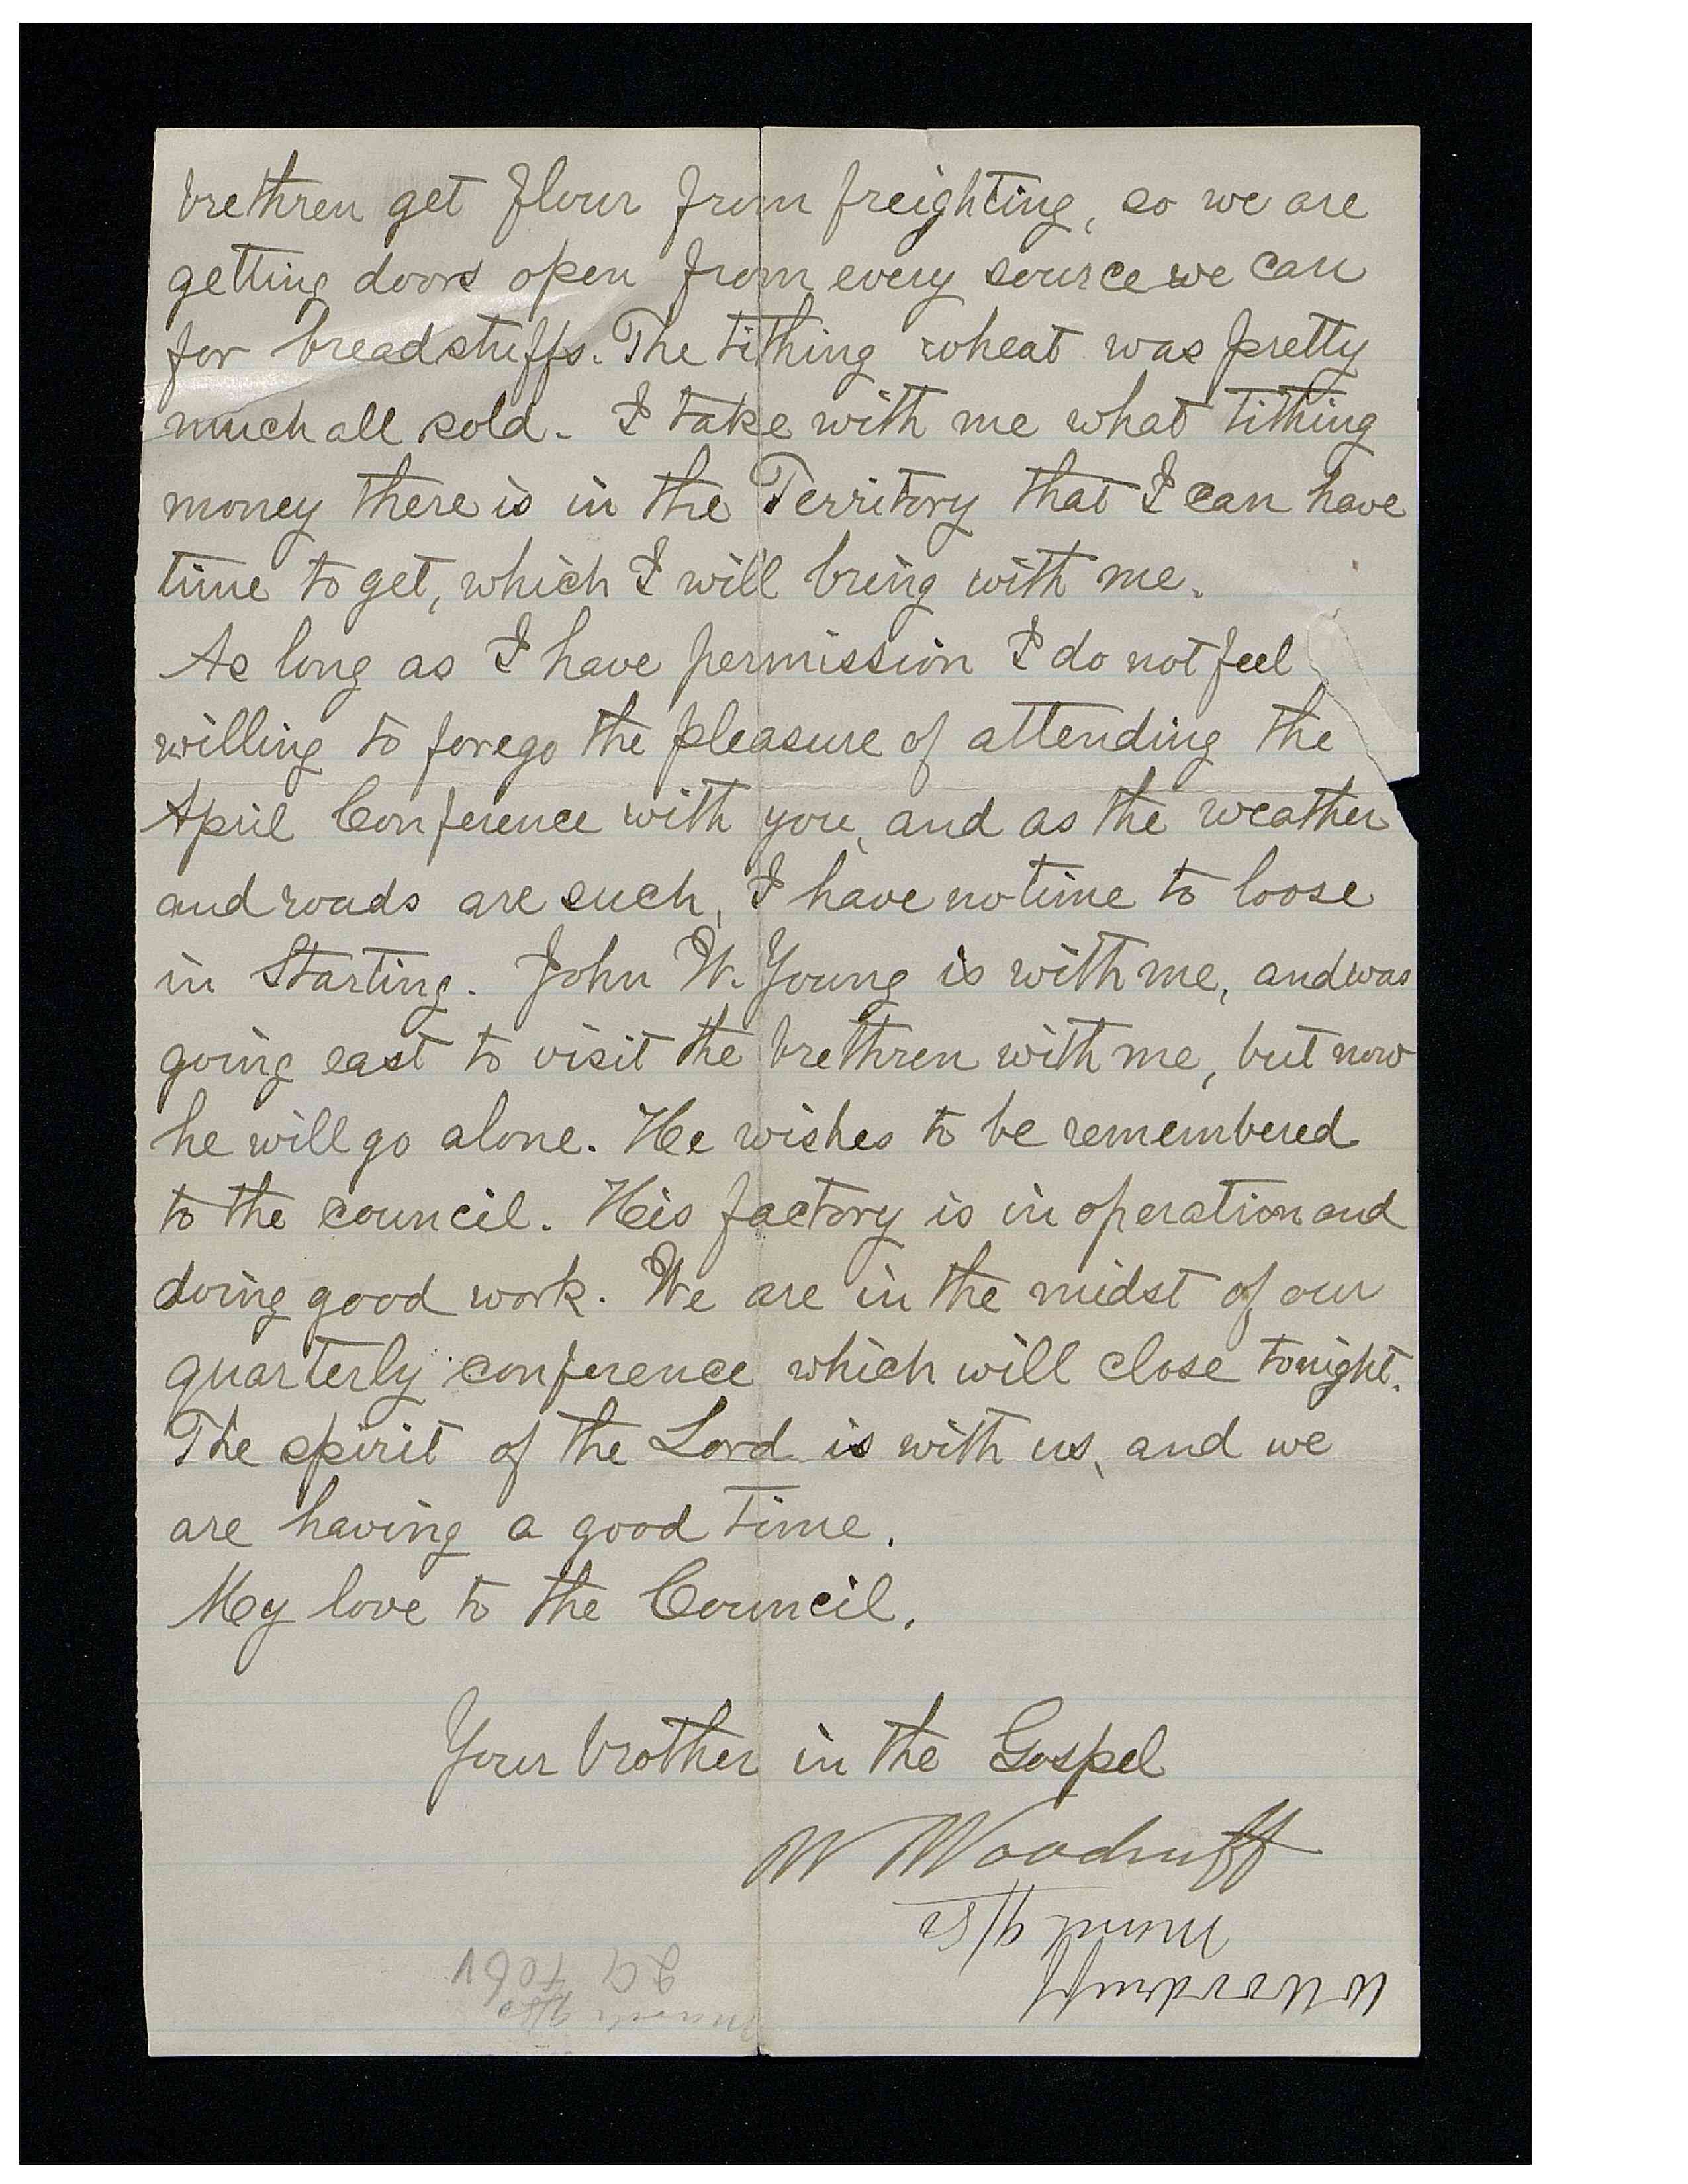 brethren get flour from freighting, so we are
getting doors open from every source we can
for breadstuffs. The tithing wheat was pretty
much all sold. I take with me what tithing
money there is in the Territory that I can have
time to get, which I will bring with me.
As long as I have permission I do not feel
willing to forego the pleasure of attending the
April Conference with you, and as the weather
and roads are such, I have no time to loose
in Starting. John W. Young is with me, and was
going east to visit the brethren with me, but now
he will go alone. He wishes to be remembered
to the council. His factory is in operation and
doing good work. We are in the midst of our
quarterly conference which will close tonight.
The spirit of the Lord is with us, and we
are having a good time.
My love to the Council.
Your brother in the Gospel
W Woodruff
W Woodruff
29 Feb